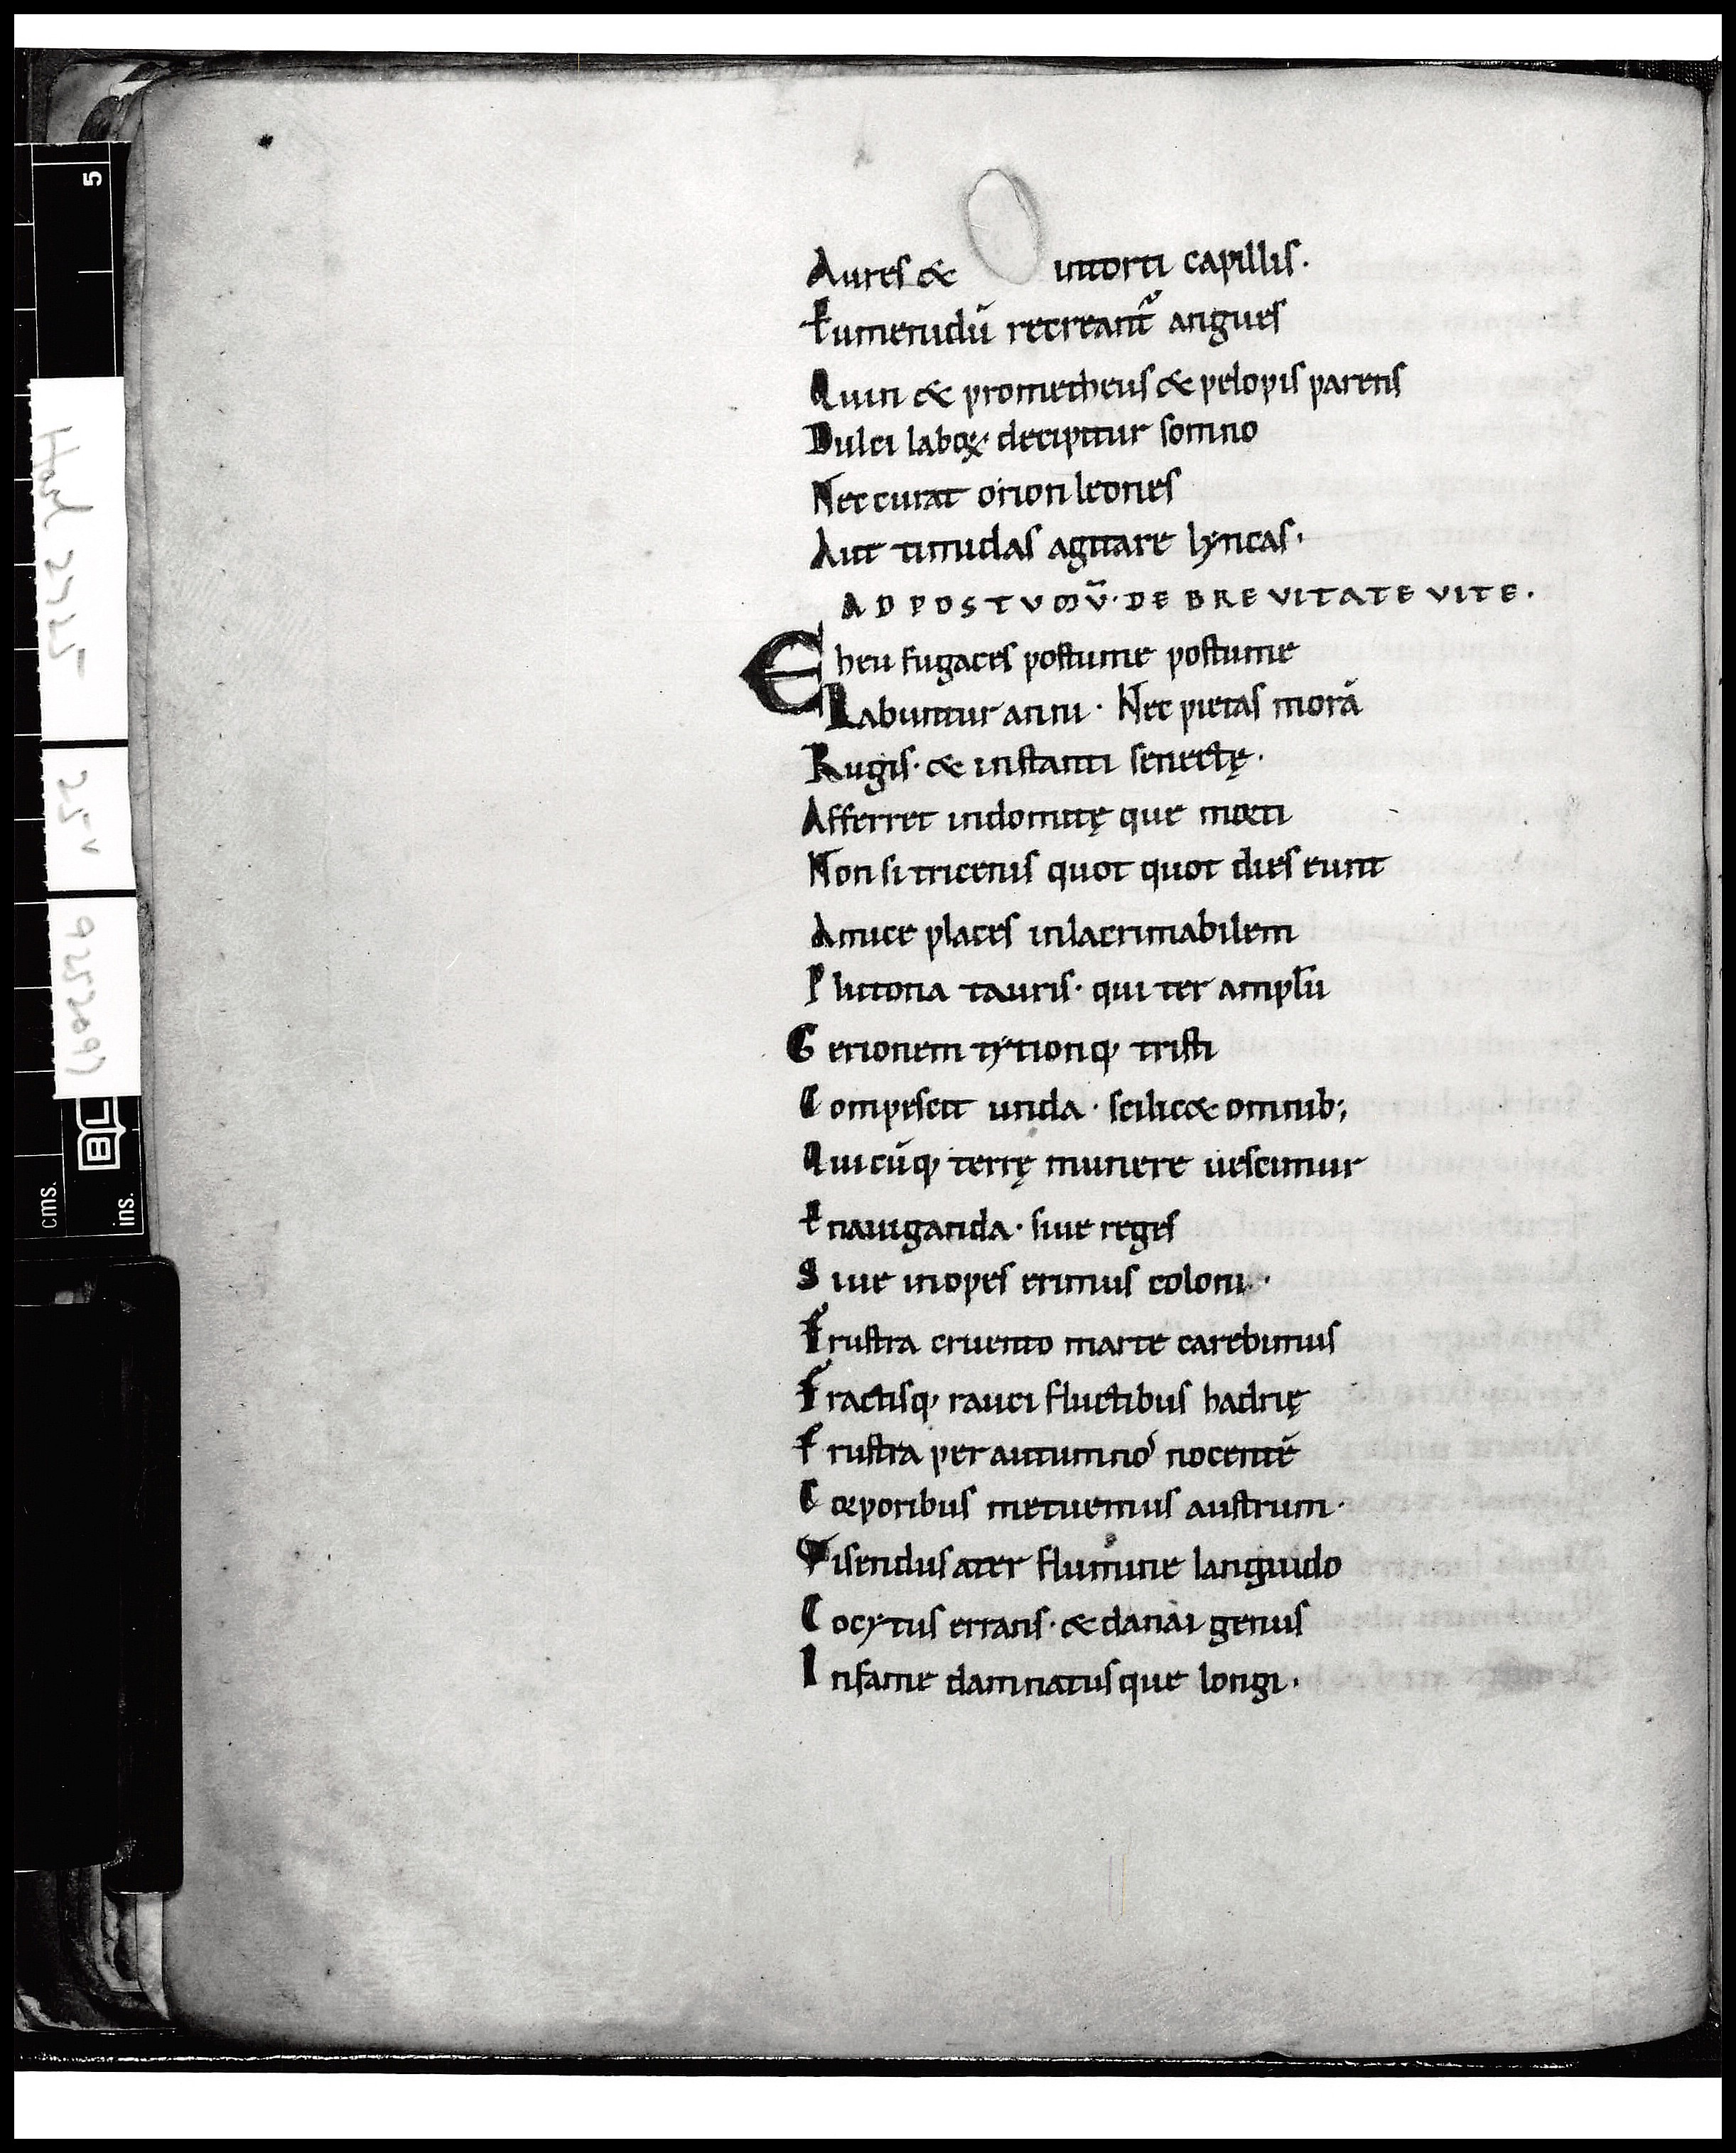 Aures & intorti capillis·
Eumenidū recreant̃ angues
Quin & prometheus & pelopis parens
Dulci laboꝝ decipitur somno
Nec curat orion leones
Aut timidas agitare lyncas·
AD POSTVMV̄·DE BREVITATE VITE·
Eheu fugaces postume postume
Labuntur anni· Nec pietas morā
Rugis· & instanti senectę·
Afferret indomitę que morti
Non si tricenis quot quot dies eunt
Amice places inlacrimabilem
Plutona tauris· qui ter amplū
Gerionem tytionq; tristi
Compescit unda· scilic& omnib;
Quicūq; terrę munere uescimur
Enauiganda· siue reges
Siue inopes erimus coloni·
Frustra cruento marte carebimus
Fractisq; rauci fluctibus hadrię
Frustra per autumnos nocentē
Corporibus metuemus austrum·
Visendus ater flumine languido
Cocytus errans· & danai genus
Infame damnatusque longi·
5
cms.
ins.
BL